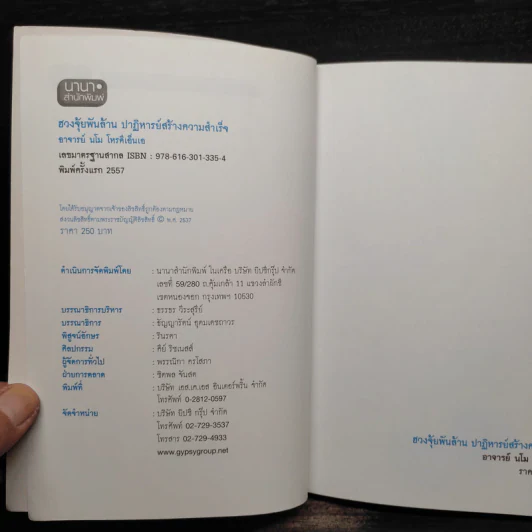 นานา
สำนักพิมพ์
ฮวงจุ้ยพันล้าน ปาฏิหารย์สร้างความสำเร็จ
อาจารย์ นโม โหรคีเอ็นเอ
เลขมาตรฐานสากล ISBN : 978-616-301-335-4
พิมพ์ครั้งแรก 2557
โดยได้รับอนุญาตจากเจ้าของลิขสิทธิ์ถูกต้องตามกฎหมาย
สงวนลิขสิทธิ์ตามพระราชบัญญัติลิขสิทธิ์ © พ.ศ. 2537
ราคา 250 บาท
ดำเนินการจัดพิมพ์โดย : นานาสำนักพิมพ์ ในเครือ บริษัท ยิปซีกรุ๊ป จำกัด
เลขที่ 59/280 ถ.คุ้มเกล้า 11 แขวงลำผักชี
เขตหนองจอก กรุงเทพฯ 10530
บรรณาธิการบริหาร : ธรรธร วีระสุรีย์
บรรณาธิการ : ธัญญารัตน์ อุดมเดชถาวร
พิสูจน์อักษร : รินรดา
ศิลปกรรม : คีย์ ริชเนสส์
ผู้จัดการทั่วไป : พรรณิภา ครโสภา
ฝ่ายการตลาด : ชิตพล จันสด
พิมพ์ที่ : บริษัท เอส.เค.เอส อินเตอร์พริ้น จำกัด
โทรศัพท์ 0-2812-0597
จัดจำหน่าย : บริษัท ยิปซี กรุ๊ป จำกัด
โทรศัพท์ 02-729-3537
โทรสาร 02-729-4933
www.gypsygroup.net
ฮวงจุ้ยพันล้าน ปาฏิหารย์สร้าง
อาจารย์ นโม